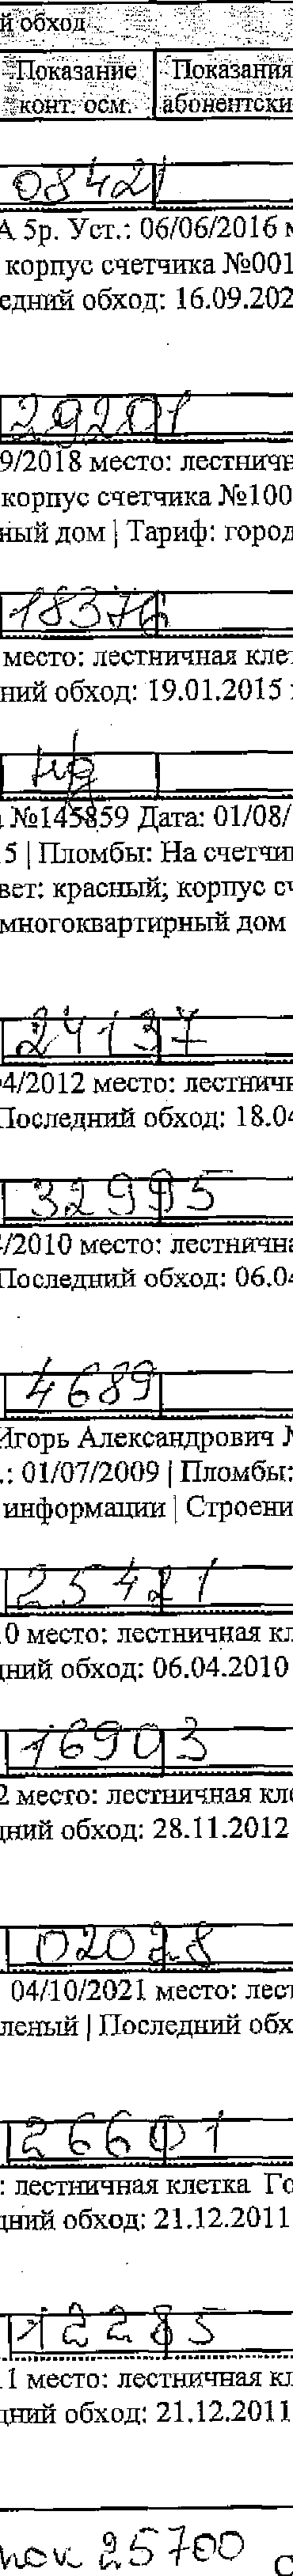 й обход
Показание Показания
конт. осм. абонентски
08421
А 5р. Уст.: 06/06/2016 м
корпус счетчика №001
едний обход: 16.09.202
29201
9/2018 место: лестничн
корпус счетчика №100
ный дом | Тариф: город
18376
место: лестничная клет
ний обход: 19.01.2015
№145859 Дата: 01/08/
5 | Пломбы: На счетчи
вет: красный; корпус сч
многоквартирный дом
24137
04/2012 место: лестничн
Последний обход: 18.04
32995
/2010 место: лестнична
Последний обход: 06.04
4689
Игорь Александрович
.: 01/07/2009 | Пломбы:
информации | Строени
25421
0 место: лестничная кл
дний обход: 06.04.2010
16903
2 место: лестничная кле
дний обход: 28.11.2012
02028
04/10/2021 место: лест
леный | Последний обх
26601
: лестничная клетка Го
дний обход: 21.12.2011
12285
11 место: лестничная кл
дний обход: 21.12.2011
25700